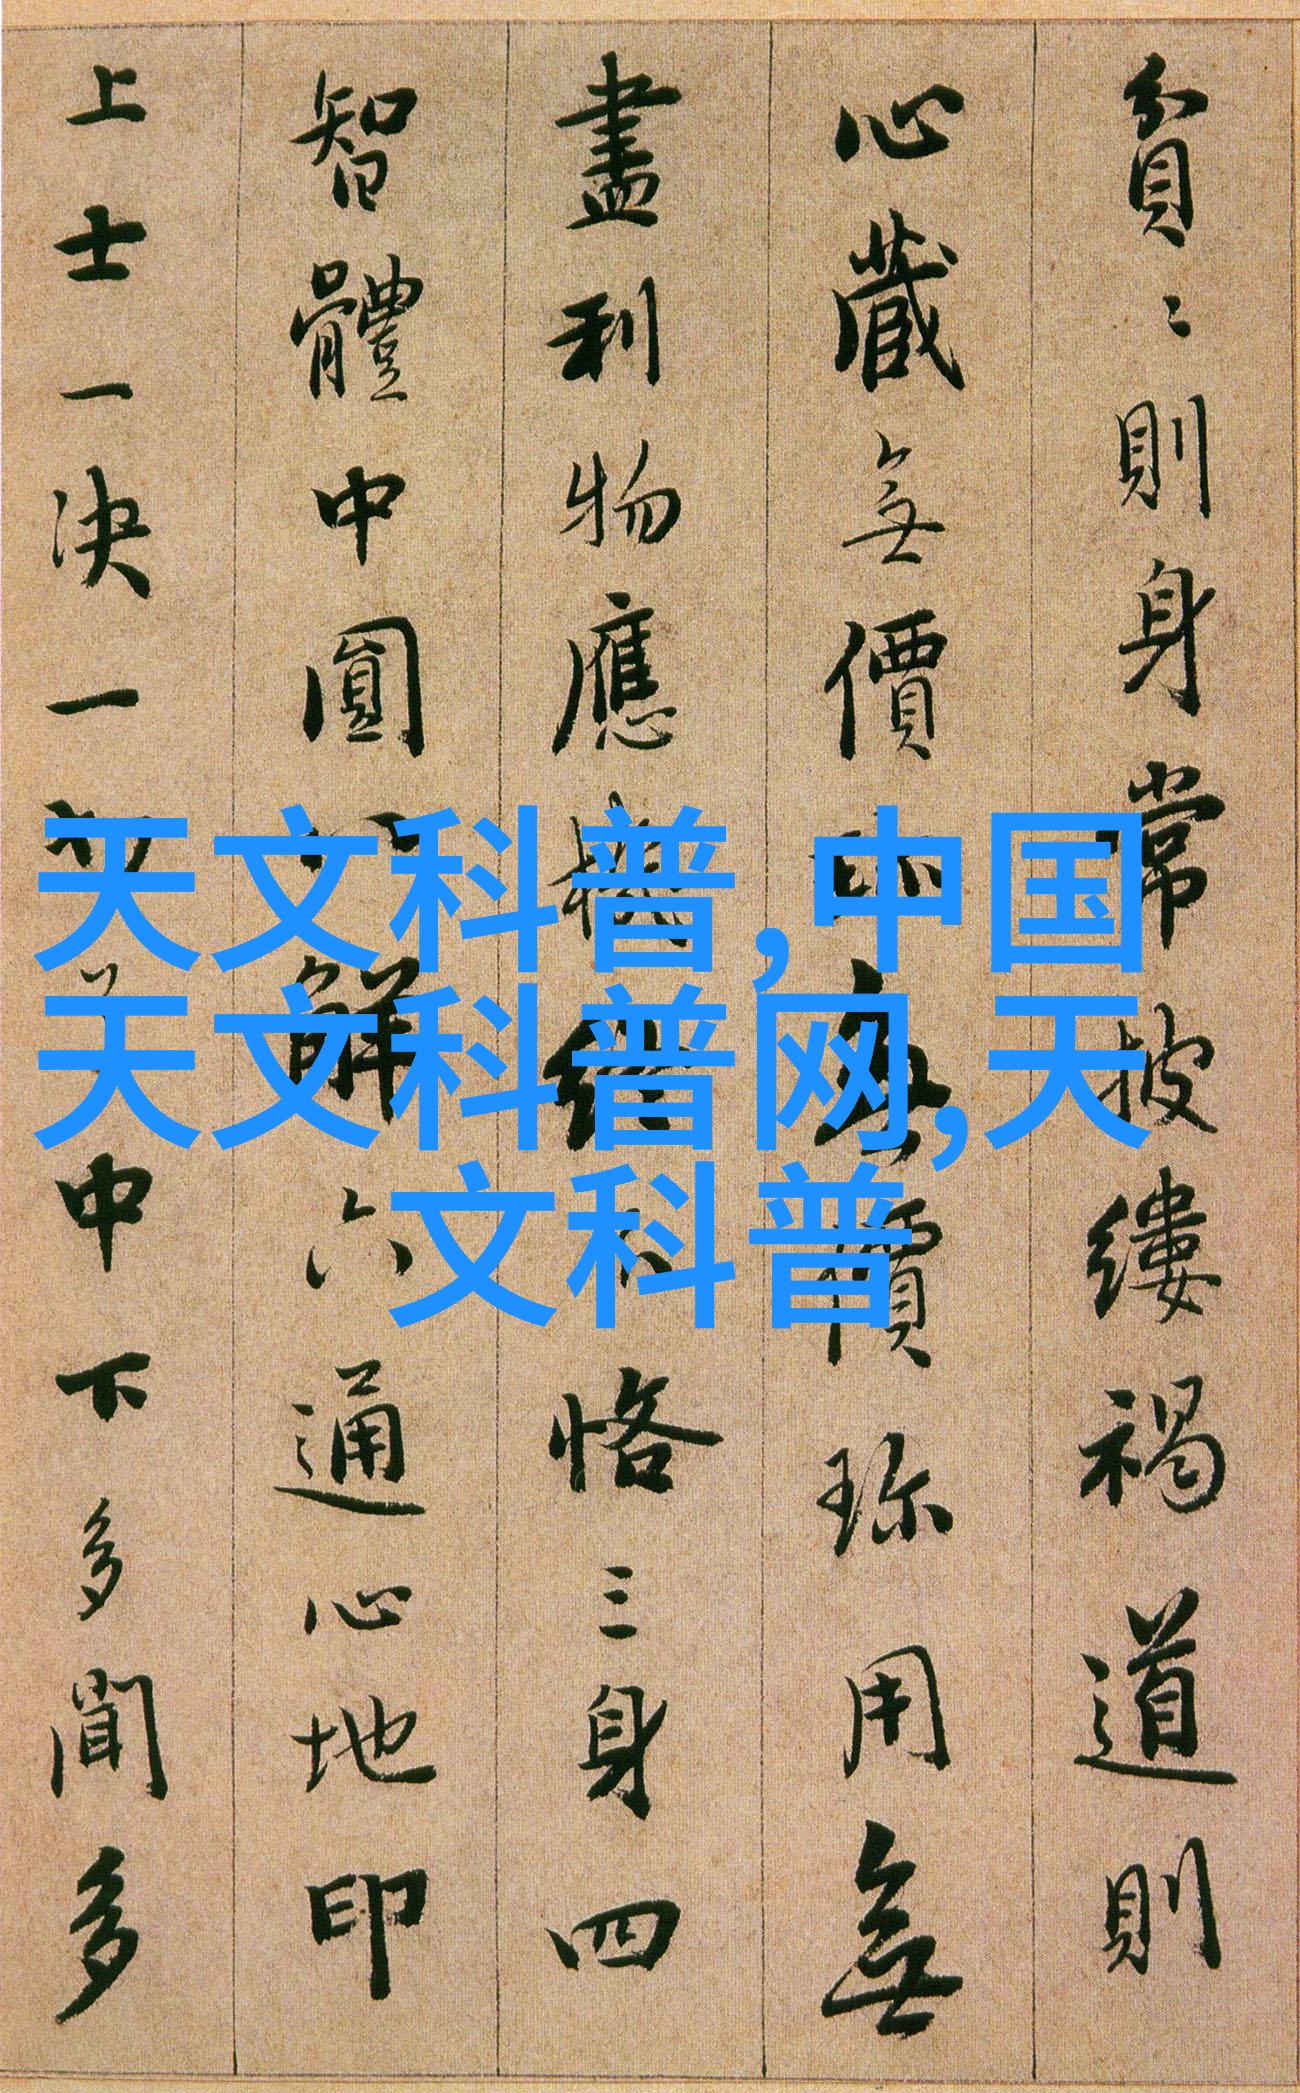 天文科普,中国
天文科普网,天
文科普
貧〻則身常披縷褐道則
心藏無價無價珎用無
盡利物應機恪三身四
智體中圓解六通心地印
上士一決一中下多聞多